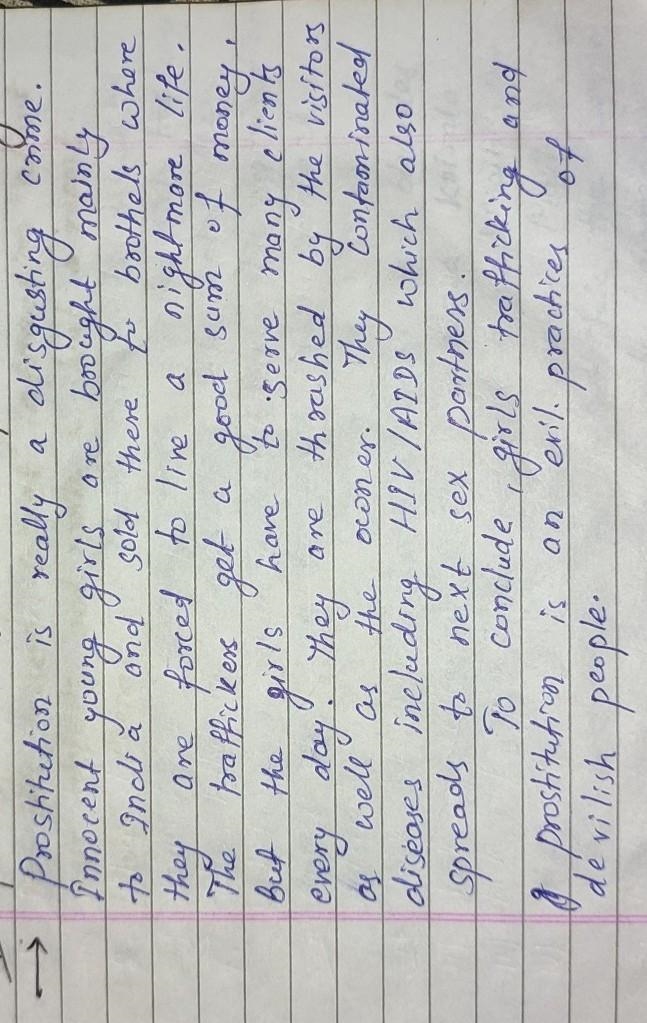 → Prostitution is really a disgusting crime.
Innocent young girls are brought mainly
to India and sold there to brothels where
they are forced to live a nightmare life.
The traffickers get a good sum of money.
But the girls have to serve many clients
every day. They are thrashed by the visitors
as well as the owner. They contaminated
diseases including HIV/AIDS which also
spreads to next sex partners.
To conclude, girls trafficking and
prostitution is an evil. practices of
devilish people.